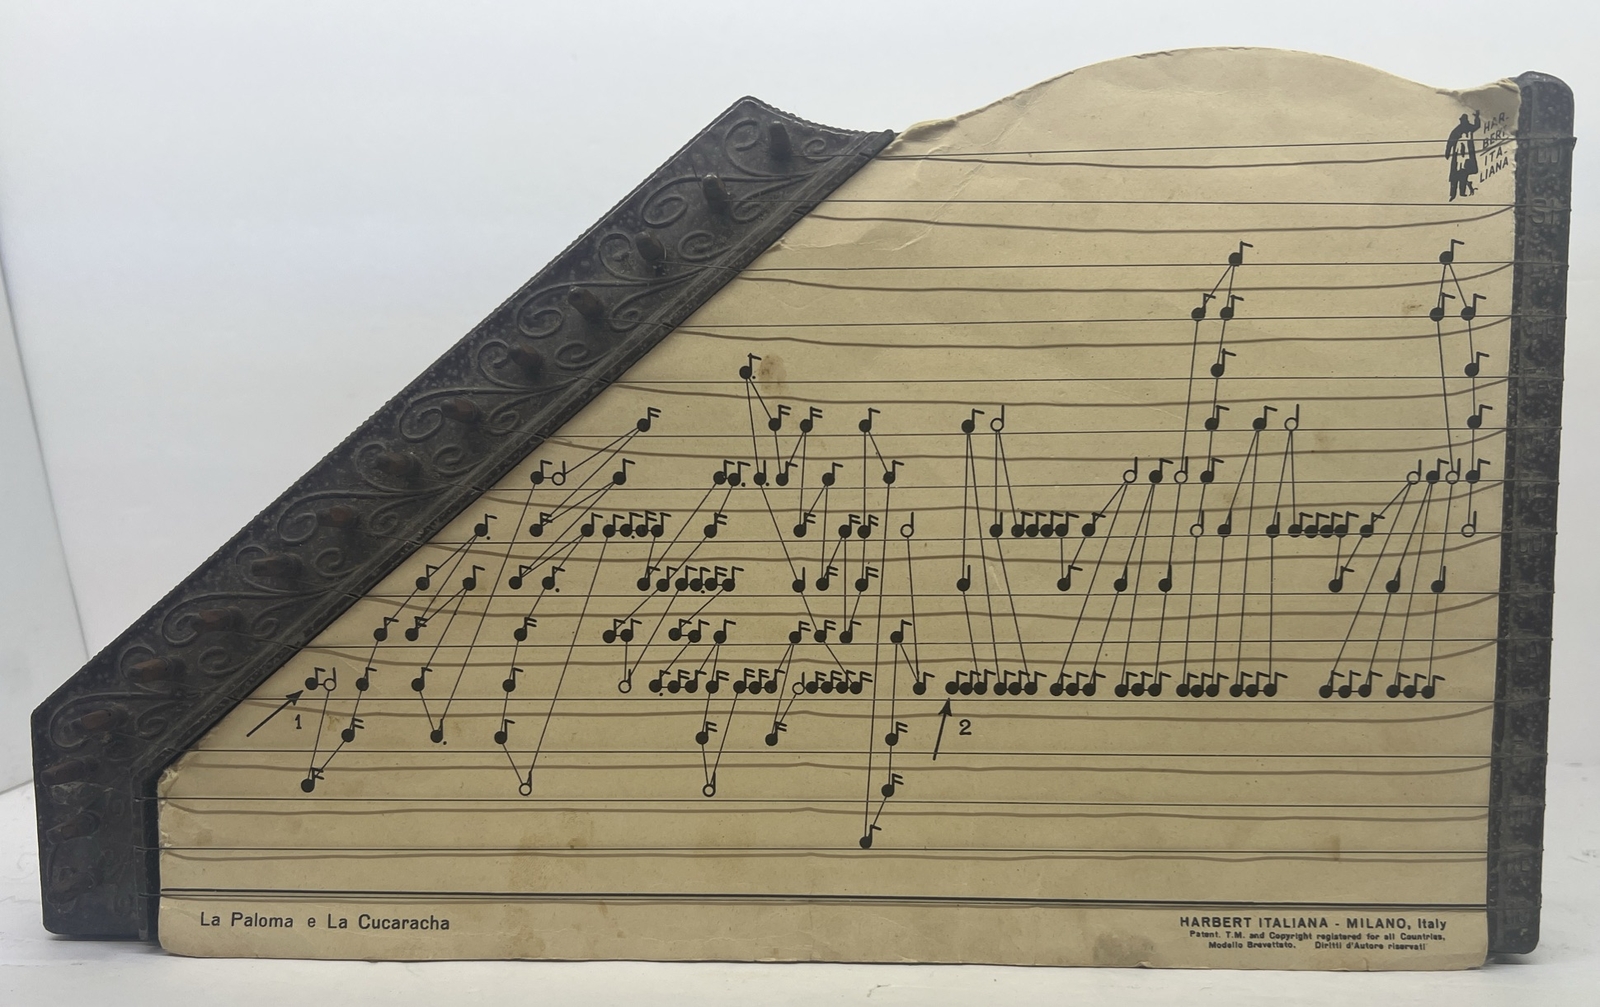 HAR-
BERT
ITA-
LIANA
1
2
La Paloma e La Cucaracha
HARBERT ITALIANA - MILANO, Italy
Patent. T.M. and Copyright registered for all Countries.
Modello Brevettato. Diritti d'Autore riservati